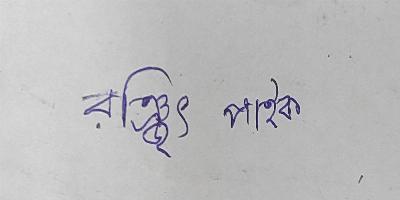 রঞ্জিৎ পাইক